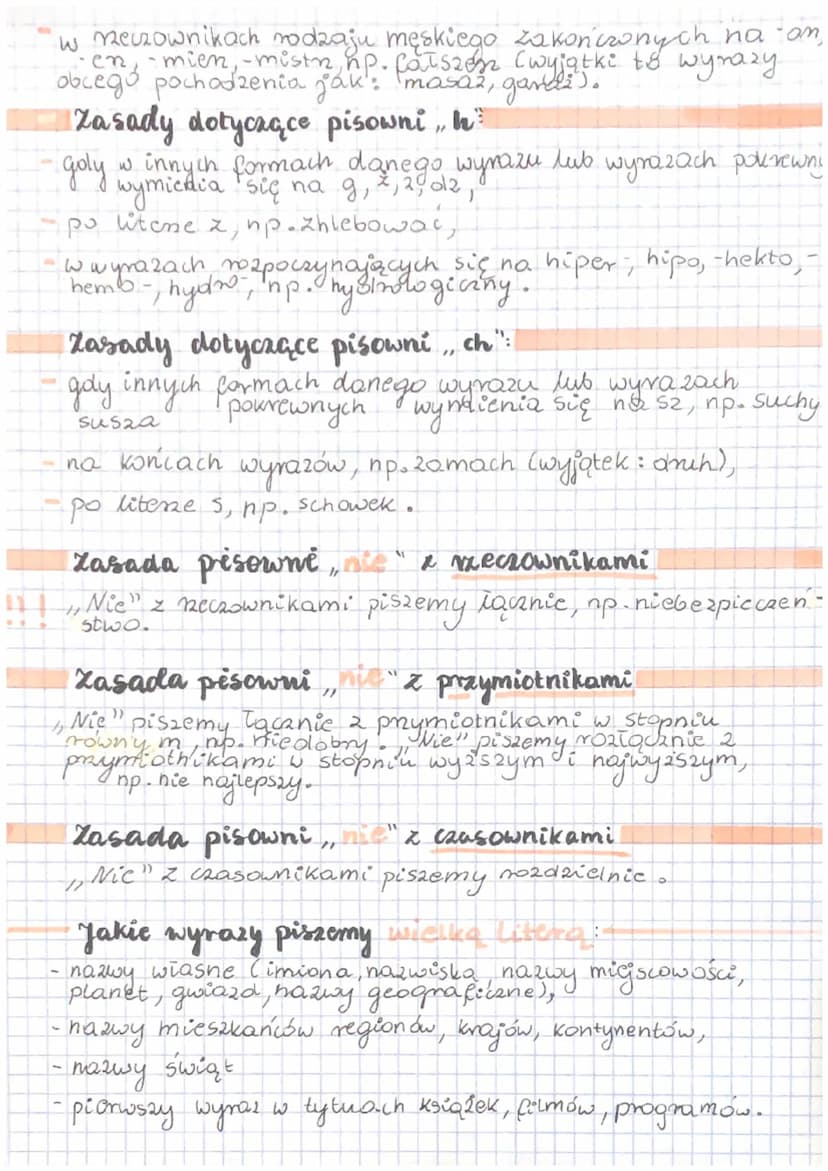 - w rzeczownikach rodzaju męskiego zakończonych na -arz,
-erz, -mierz, -mistrz, np. fałszerz (wyjątki to wyrazy
obcego pochodzenia jak: masaż, garaż).
Zasady dotyczące pisowni „h":
- gdy w innych formach danego wyrazu lub wyrazach pokrewny
wymienia się na g, ż, z, dz,
- po literze z, np. zhlebować,
- w wyrazach rozpoczynających się na hiper-, hipo, -hekto, -
hemo-, hydro-, np. hydrologiczny.
Zasady dotyczące pisowni „ch":
- gdy innych formach danego wyrazu lub wyrazach
pokrewnych wymienia się na sz, np. suchy
susza
- na końcach wyrazów, np. zamach (wyjątek: druh),
- po literze s, np. schowek.
Zasada pisowni „nie" z rzeczownikami
!!! „Nie" z rzeczownikami piszemy łącznie, np. niebezpieczeń-
stwo.
Zasada pisowni „nie" z przymiotnikami
„Nie" piszemy łącznie z przymiotnikami w stopniu
równym, np. niedobry. „Nie" piszemy rozłącznie z
przymiotnikami w stopniu wyższym i najwyższym,
np. nie najlepszy.
Zasada pisowni „nie" z czasownikami
„Nie" z czasownikami piszemy rozdzielnie.
Jakie wyrazy piszemy wielką literą:
- nazwy własne (imiona, nazwiska, nazwy miejscowości,
planet, gwiazd, nazwy geograficzne),
- nazwy mieszkańców regionów, krajów, kontynentów,
- nazwy świąt
- pierwszy wyraz w tytułach książek, filmów, programów.